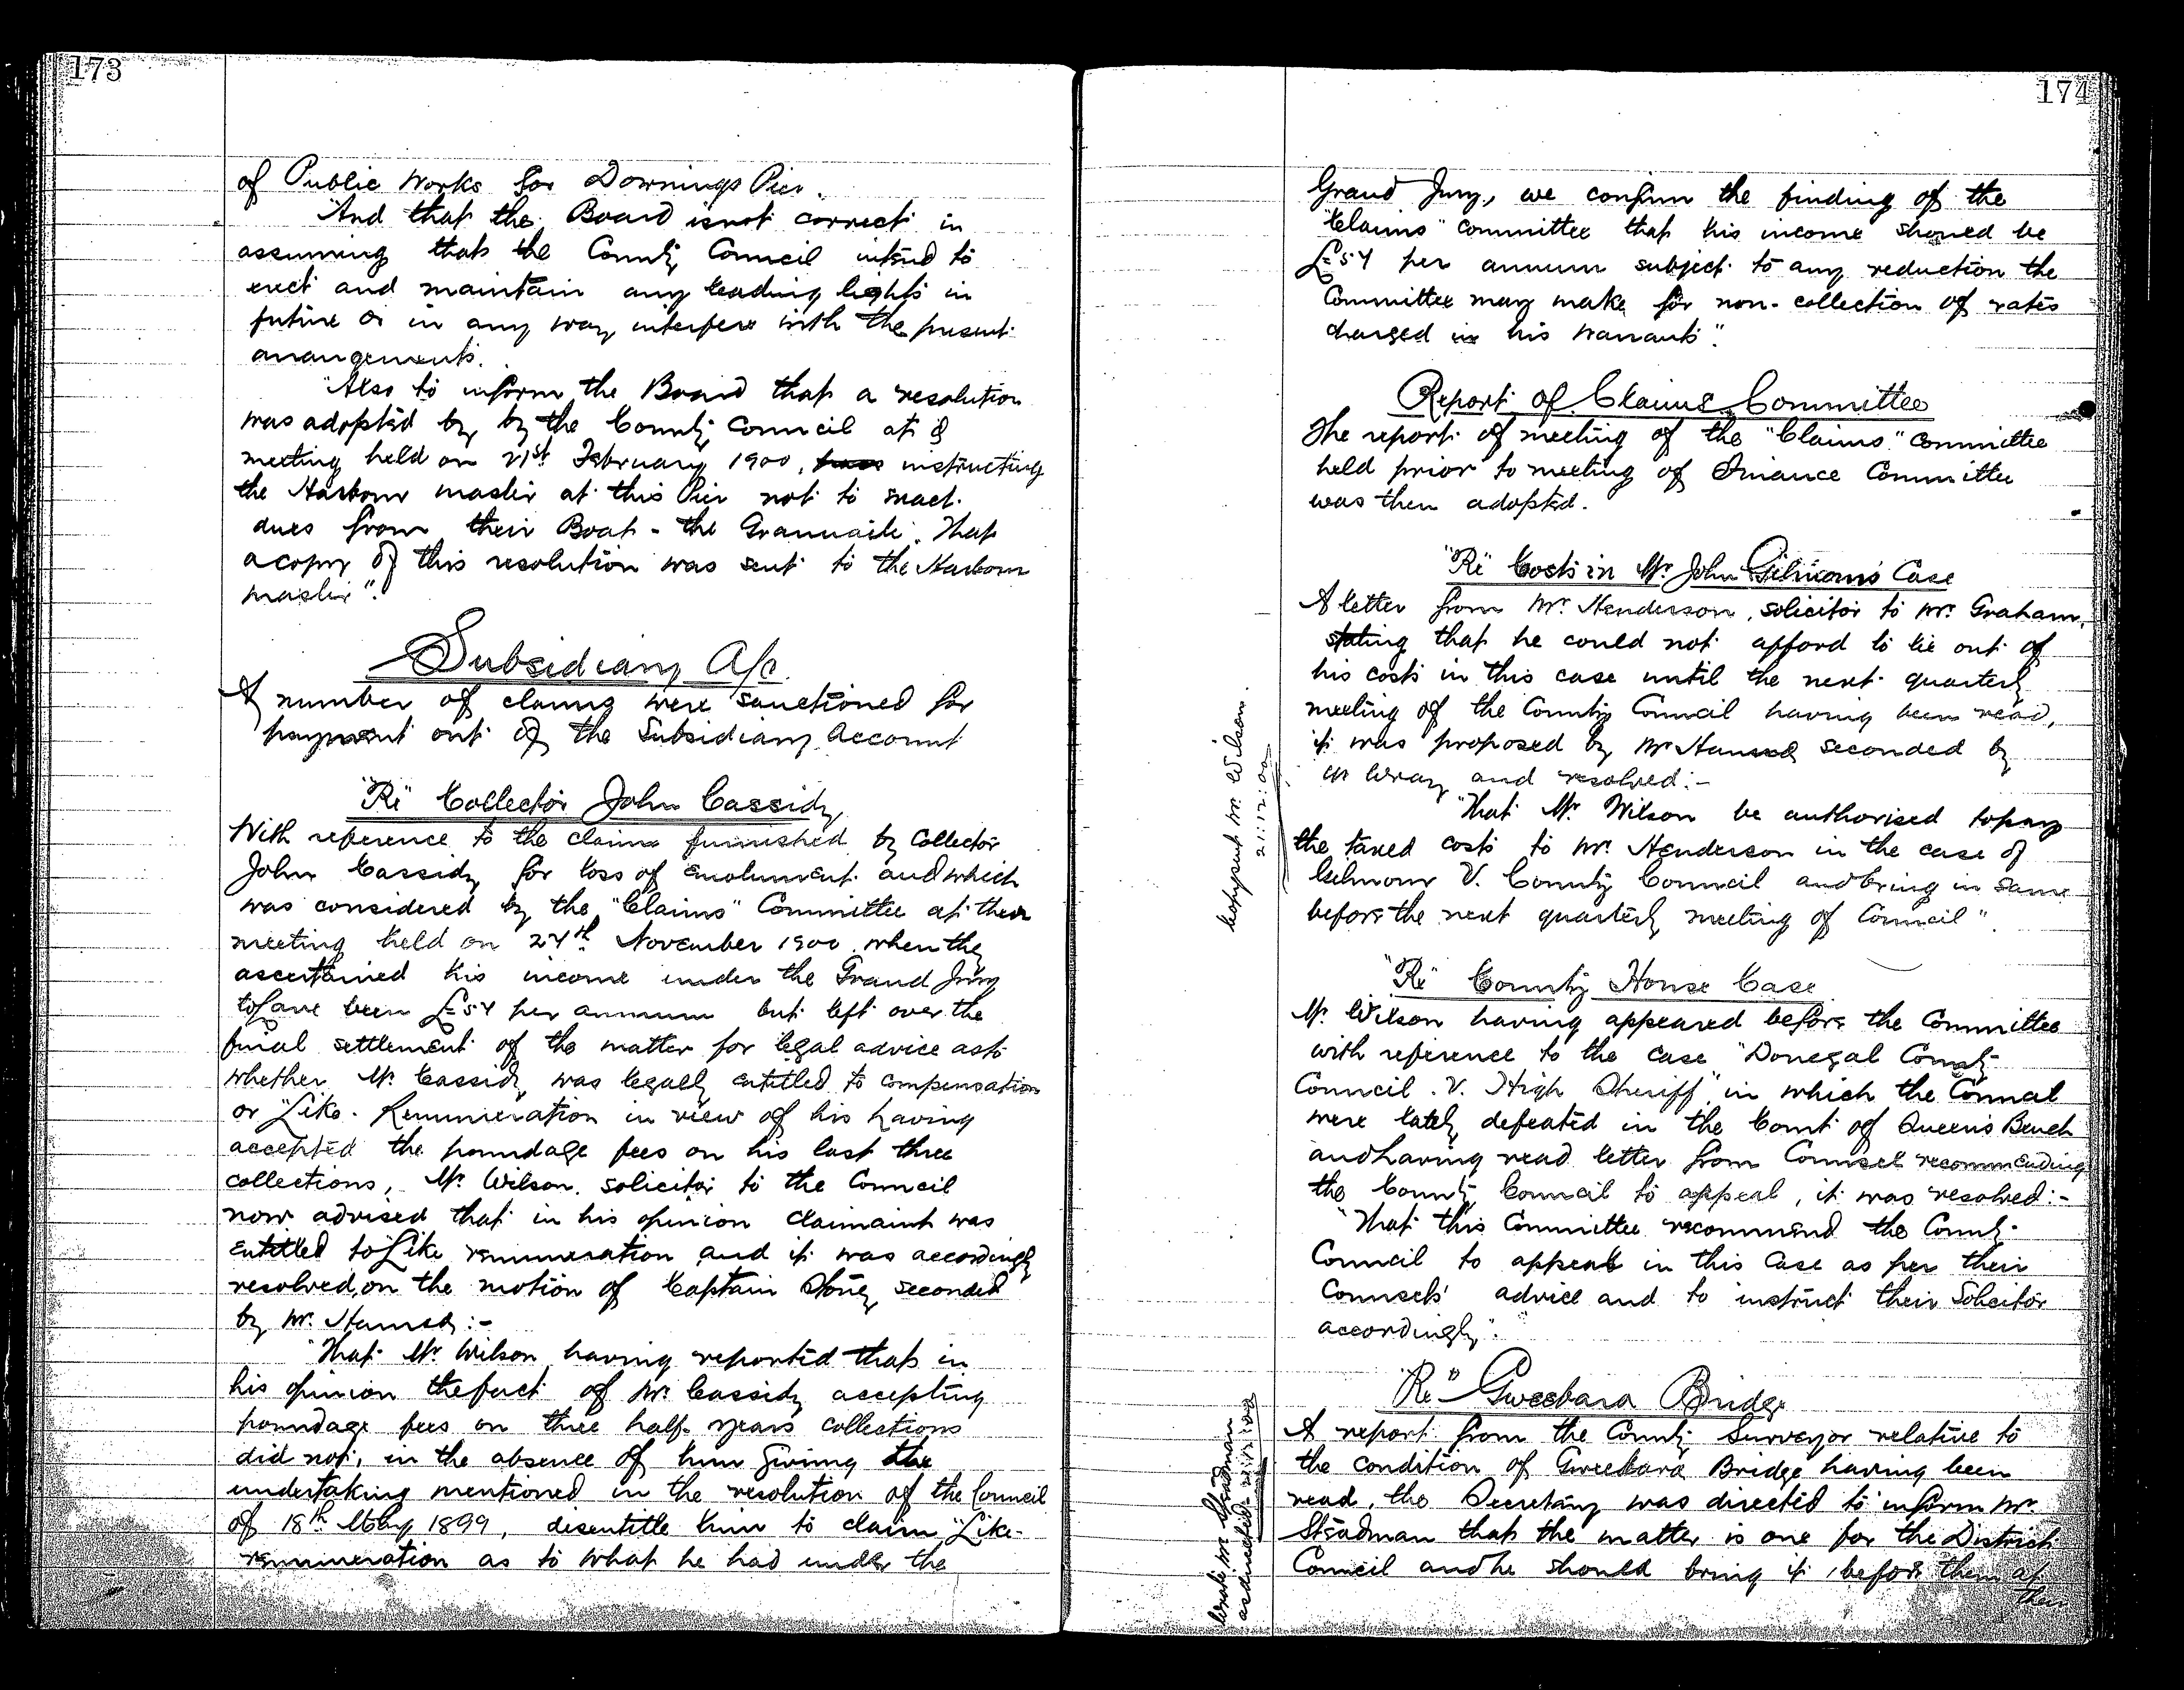 173
of Public Works for Downings Pier.
"And that the Board is not correct in
assuming that the County Council intend to
erect and maintain any leading lights in
future or in any way interfere with the present
arrangements.
"Also to inform the Board that a resolution
was adopted by by the County Council at a
meeting held on 21st February 1900, instructing
the Harbour master at this Pier not to exact
dues from their Boat - the Granuaile. That
a copy of this resolution was sent to the Harbour
master".
Subsidiary A/c.
A number of claims were sanctioned for
payment out of the Subsidiary Account
"Re" Collector John Cassidy
With reference to the claim furnished by Collector
John Cassidy for loss of emolument and which
was considered by the "Claims" Committee at their
meeting held on 27th November 1900 when they
ascertained his income under the Grand Jury
to have been £54 per annum but left over the
final settlement of the matter for legal advice as to
whether Mr. Cassidy was legally entitled to compensation
or "Like-Remuneration in view of his having
accepted the poundage fees on his last three
collections, Mr. Wilson, solicitor to the Council
now advised that in his opinion claimaint was
entitled to Like remuneration and it was accordingly
resolved, on the motion of Captain Stoney seconded
by Mr. :-
"That Mr Wilson having reported that in
his opinion the fact of Mr. Cassidy accepting
poundage fees on three half-years collections
did not, in the absence of him giving the
undertaking mentioned in the resolution of the Council
of 18th May 1899, disentitle him to claim "Like-
remuneration as to what he had under the
174
Grand Jury, we confirm the finding of the
"Claims" committee that his income should be
£54 per annum subject to any reduction the
Committee may make for non-collection of rates
charged in his warrants".
Report of Claims Committee
The report of meeting of the "Claims" committee
held prior to meeting of Finance Committee
was then adopted.
"Re" Costs in Mr. John Gilmour's Case
A letter from Mr. Henderson, solicitor to Mr. Graham,
stating that he could not afford to lie out of
his costs in this case until the next quarterly
meeting of the County Council having been read,
it was proposed by Mr seconded by
Mr Wray and resolved:-
"That Mr. Wilson be authorised to pay
the taxed costs to Mr. Henderson in the case of
Gilmour V. County Council and bring in same
before the next quarterly meeting of Council".
Copy sent Mr Wilson.
21:12:00
"Re" County House Case
Mr. Wilson having appeared before the Committee
with reference to the case "Donegal County
Council .V. High Sheriff" in which the Council
were lately defeated in the Court of Queen's Bench
and having read letter from Counsel recommending
the County Council to appeal, it was resolved:-
"That this Committee recommend the County
Council to appeal in this Case as per their
Counsels' advice and to instruct their Solicitor
accordingly".
"Re" Gweebara Bridge
A report from the County Surveyor relative to
the condition of Gweebara Bridge having been
read, the Secretary was directed to inform Mr.
Steadman that the matter is one for the District
Council and he should bring it before them at
their
Wrote Mr Steadman
as directed